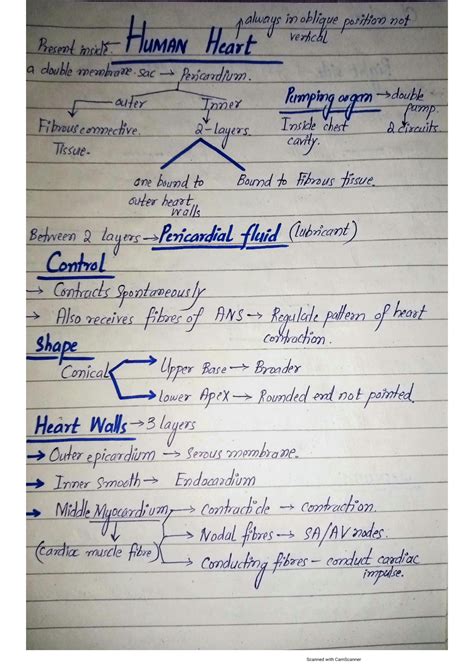 always in oblique position not
vertical
Present inside HUMAN Heart
a double membrane sac → Pericardium.
outer Inner
Pumping organ → double
pump.
Fibrous connective 2-layers
Tissue.
Inside chest 2 circuits
cavity.
one bound to Bound to Fibrous tissue.
outer heart
walls
Between 2 layers → Pericardial fluid (lubricant)
Control
→ Contracts Spontaneously
→ Also receives fibres of ANS → Regulate pattern of heart
contraction.
Shape
Conical Upper Base → Broader
Lower Apex → Rounded end not pointed.
Heart Walls → 3 layers
→ Outer epicardium → Serous membrane.
→ Inner Smooth → Endocardium
→ Middle Myocardium → contracticle → contraction.
(cardiac muscle fibre) → Nodal fibres → SA/AV nodes.
→ Conducting fibres - conduct cardiac
impulse.
Scanned with CamScanner